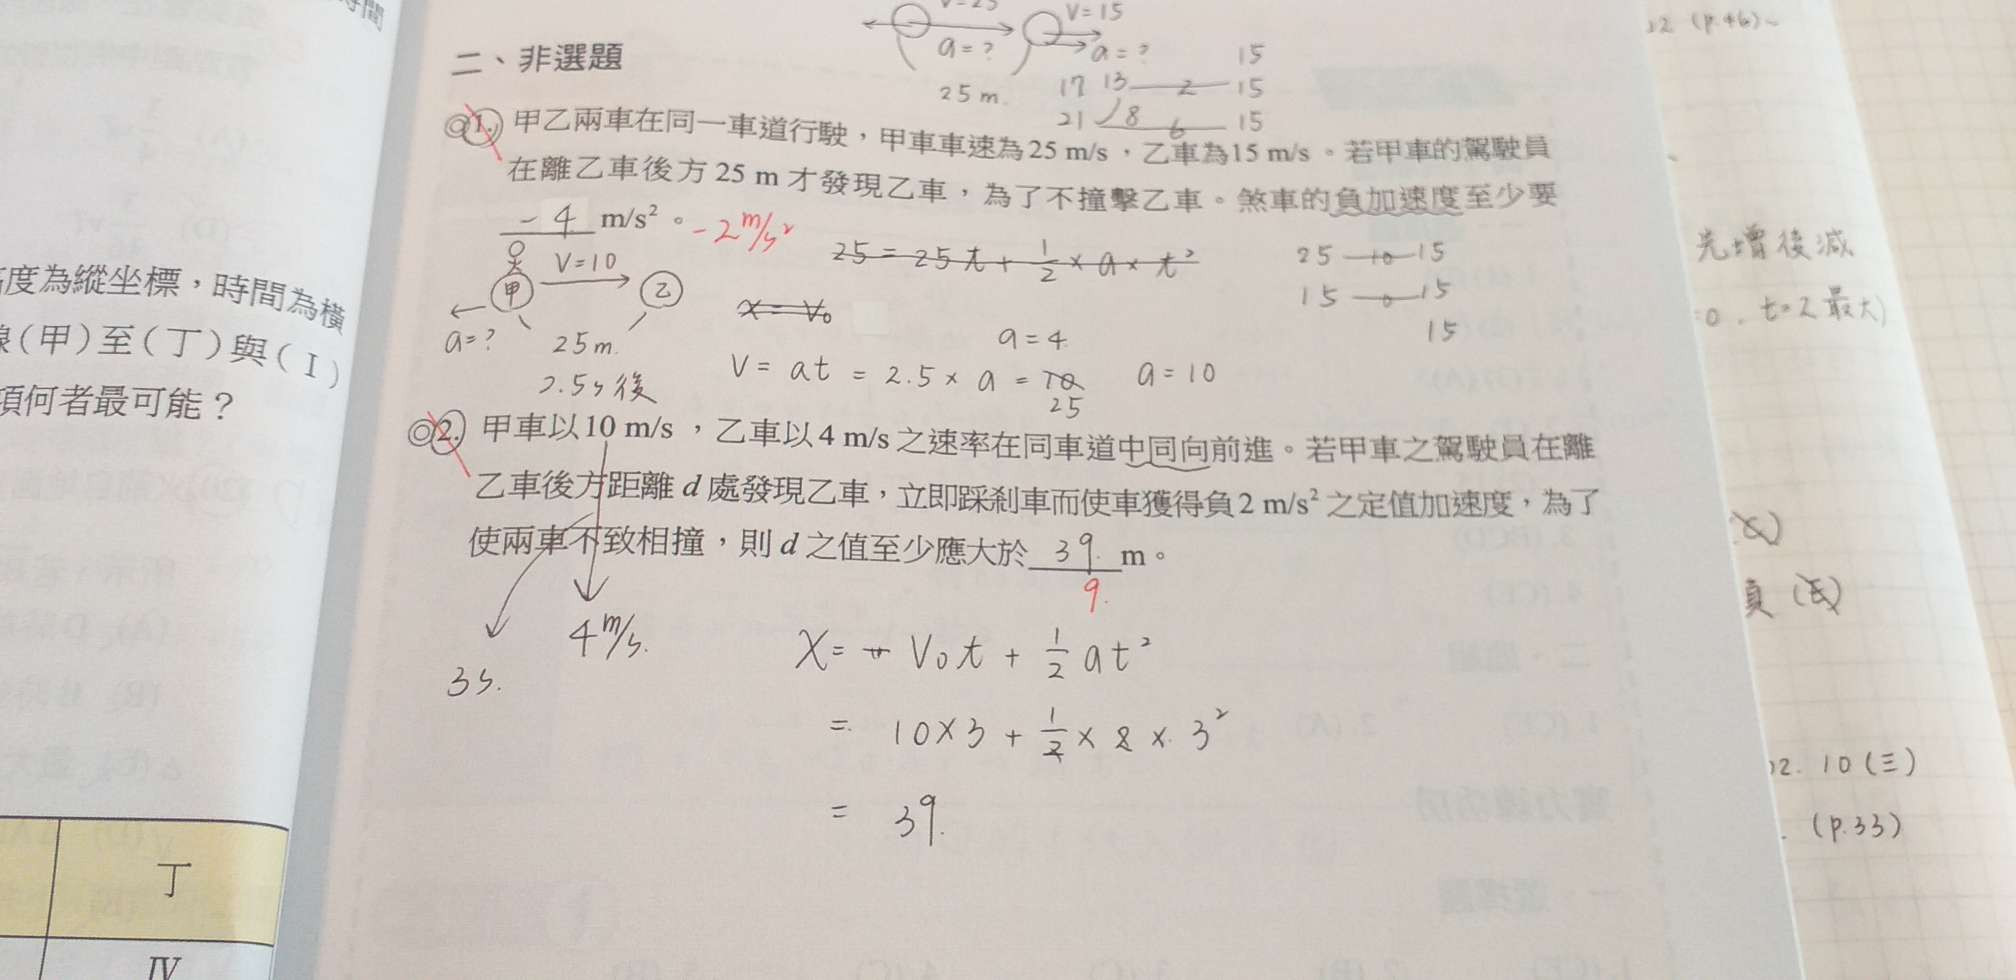 二、非選題
V=15
a=?
a=?
25m.
15
17 13 2 15
21 18 6 15
◎1. 甲乙兩車在同一車道行駛,甲車車速為25 m/s,乙車為15 m/s。若甲車的駕駛員
在離乙車後方25 m才發現乙車,為了不撞擊乙車。煞車的負加速度至少要
-4 m/s²。-2m/s²
V=10
甲
乙
a=?
25m.
2.5s後
25=25t+1/2×a×t²
x=V₀
a=4
V=at=2.5×a=10
25
a=10
25—10—15
15—0—15
15
◎2. 甲車以10 m/s,乙車以4 m/s之速率在同車道中同向前進。若甲車之駕駛員在離
乙車後方距離d處發現乙車,立即踩剎車而使車獲得負2 m/s²之定值加速度,為了
使兩車不致相撞,則d之值至少應大於 39. m。
9.
3s.
4m/s.
X=V₀t+1/2at²
=10×3+1/2×2×3²
=39.
度為縱坐標,時間為橫
線(甲)至(丁)與(I)
項何者最可能?
丁
IV
(p.46)~
先增後減
t=2最大)
負
10(三)
(p.33)